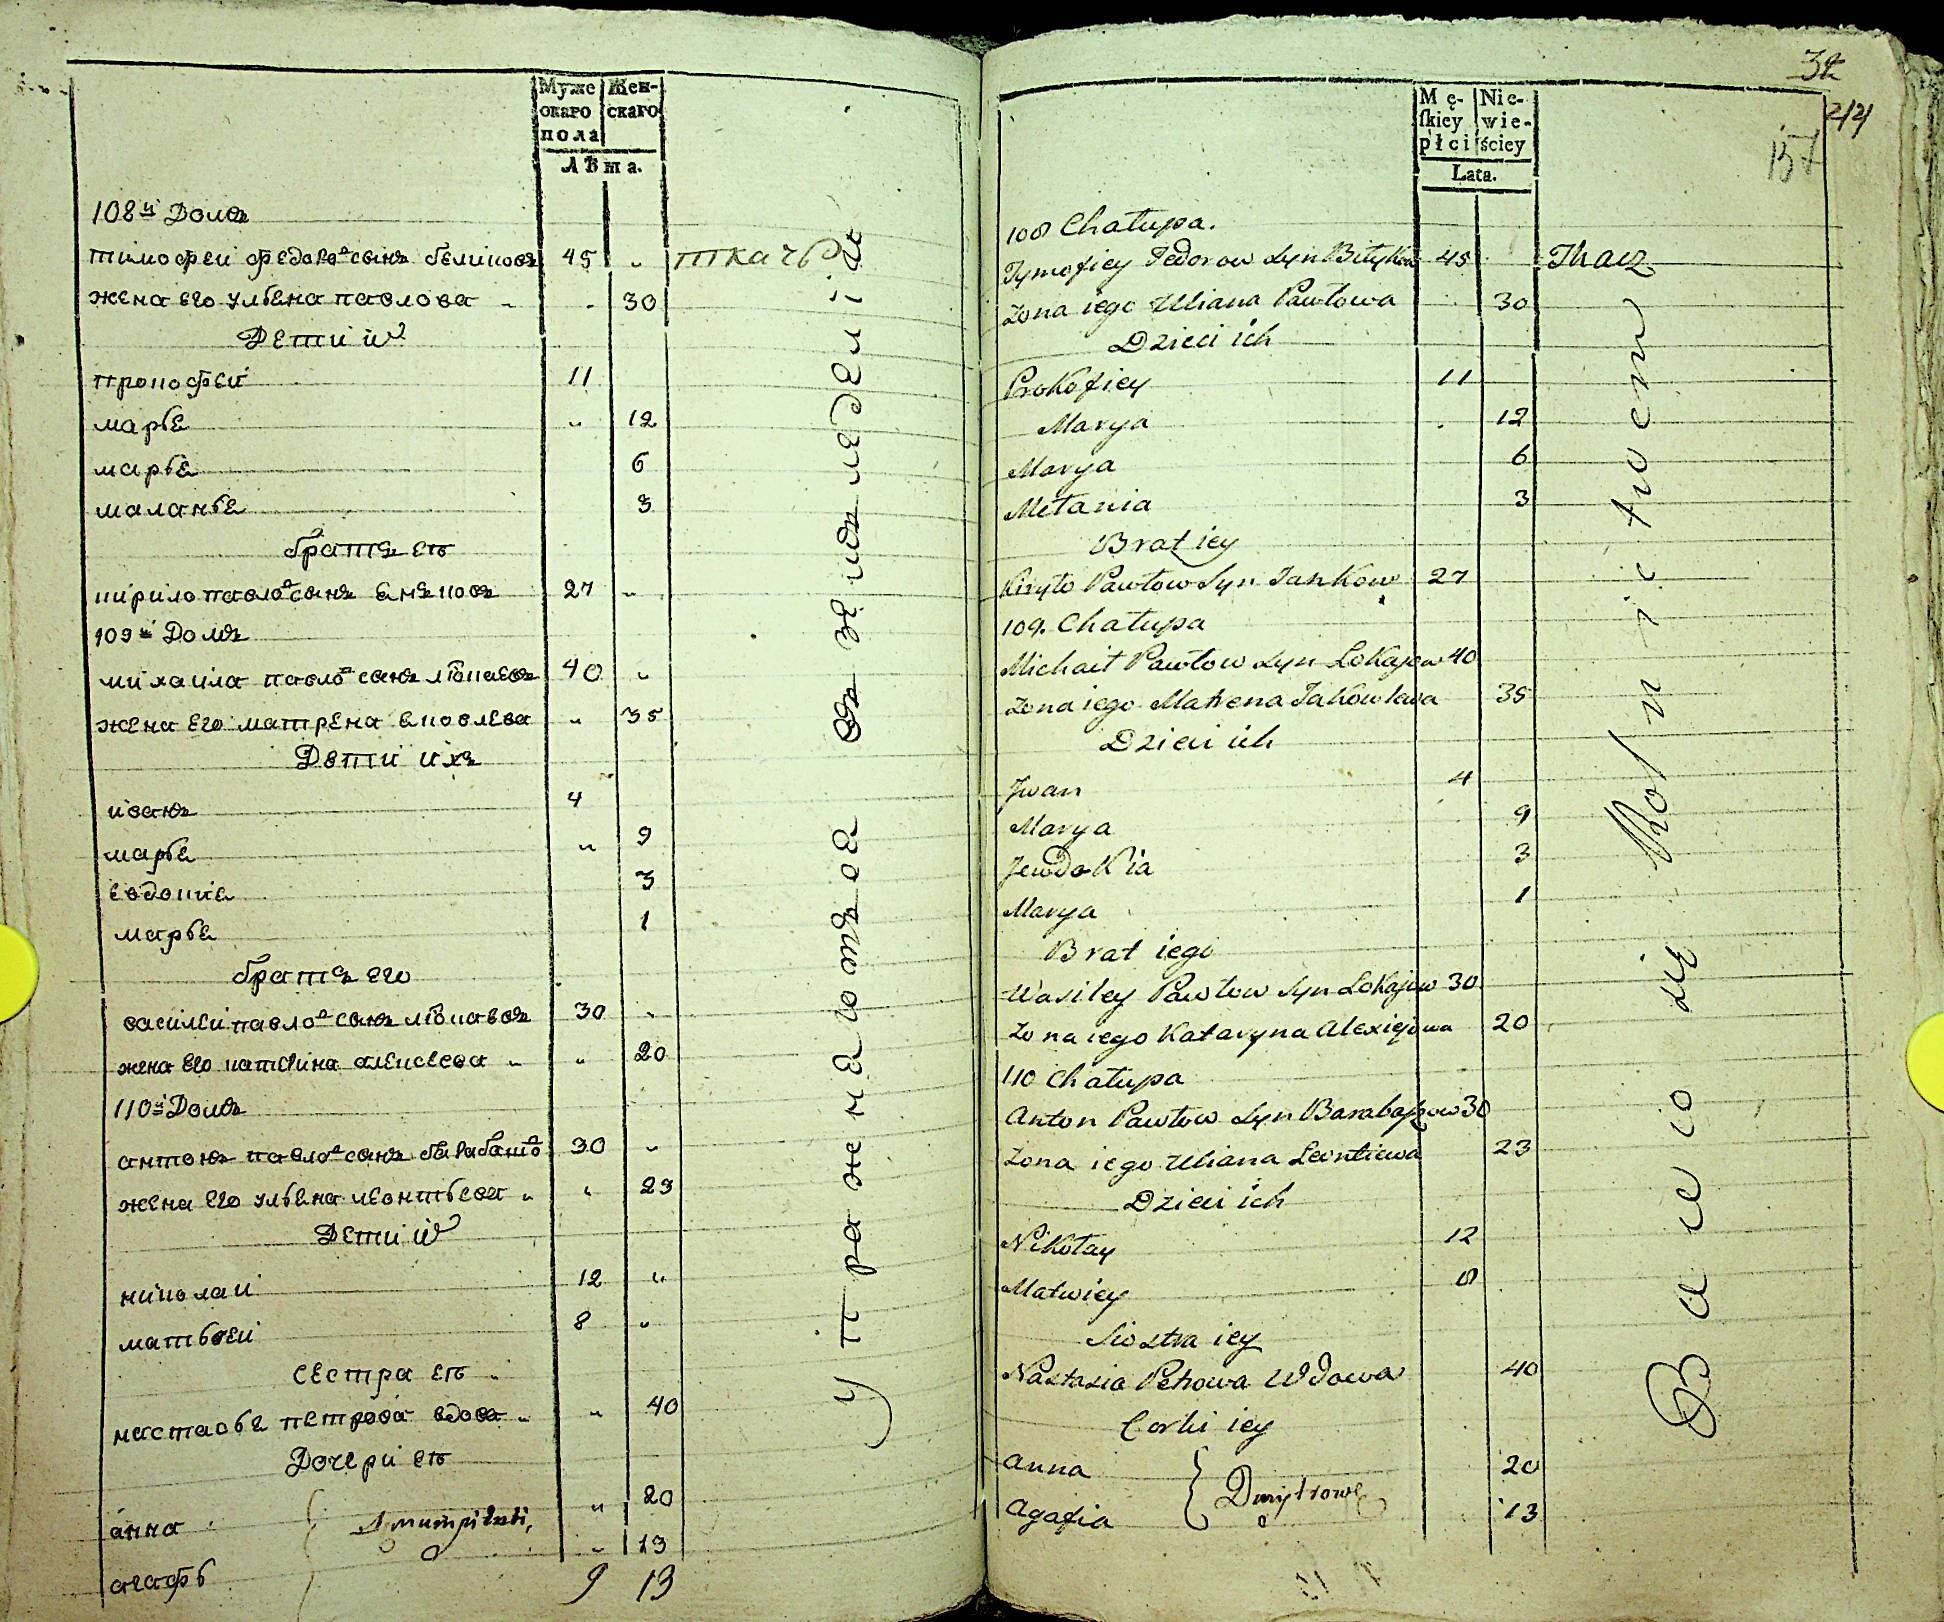 Муже Жен-
скаго скаго
пола
Лѣта.
108й Домъ
тимофеи федоро сынъ беликовъ 45 „ ткачъ
жена его ульена павлова „ „ 30
Дети их
прокофеи 11
марье „ 12
марье 6
маланье 3
братъ еѣ
кирило павло сынъ енъковъ 27 „
109й Домъ
михаила павло сынъ локаевъ 40 „
жена его матренаековлева „ 35
Дети ихъ
иванъ 4
марье „ 9
евдокие 3
марье 1
братъ его
василеи павло сынъ локаевъ 30 „
жена его катерина алексеева „ „ 20
110й Домъ
антонъ павло сынъ барабашо 30 „
жена его ульена леонтьева „ „ 23
Дети их
николаи 12 „
матьвеи 8 „
сестра еѣ „
настасье петрова вдова „ „ 40
Дочери еѣ
анна „ 20
агафь „ 13
9 13
упражнеютъсе въ земледелие
32
244
157
Mę- Nie-
skiey wie-
płci ściey
Lata.
108 Chałupa.
Tymofiey Fedorow Syn Bitykow 45 Tkacz
Żona iego Uliana Pawłowa 30
Dzieci ich
Prokofiey 11
Marya 12
Marya 6
Melania 3
Brat iey
Kiryło Pawłow Syn Jankow 27
109. Chałupa
Michaił Pawłow Syn Lokajow 40
Żona iego Matrena Jakowlewa 35
Dzieci ich
Jwan 4
Marya 9
Jewdokia 3
Marya 1
Brat iego
Wasiley Pawłow Syn Lokajow 30
Żona iego Kataryna Alexiejowa 20
110 Chałupa
Anton Pawłow Syn Barabaszow 30
Żona iego Uliana Leontiewa 23
Dzieci ich
Nikołay 12
Matwiey 8
Siostra iey
Nastasia Petrowa Wdowa 40
Corki iey
Anna 20
Agafia 13
Dmytrowe
Bawio się Rolnictwem